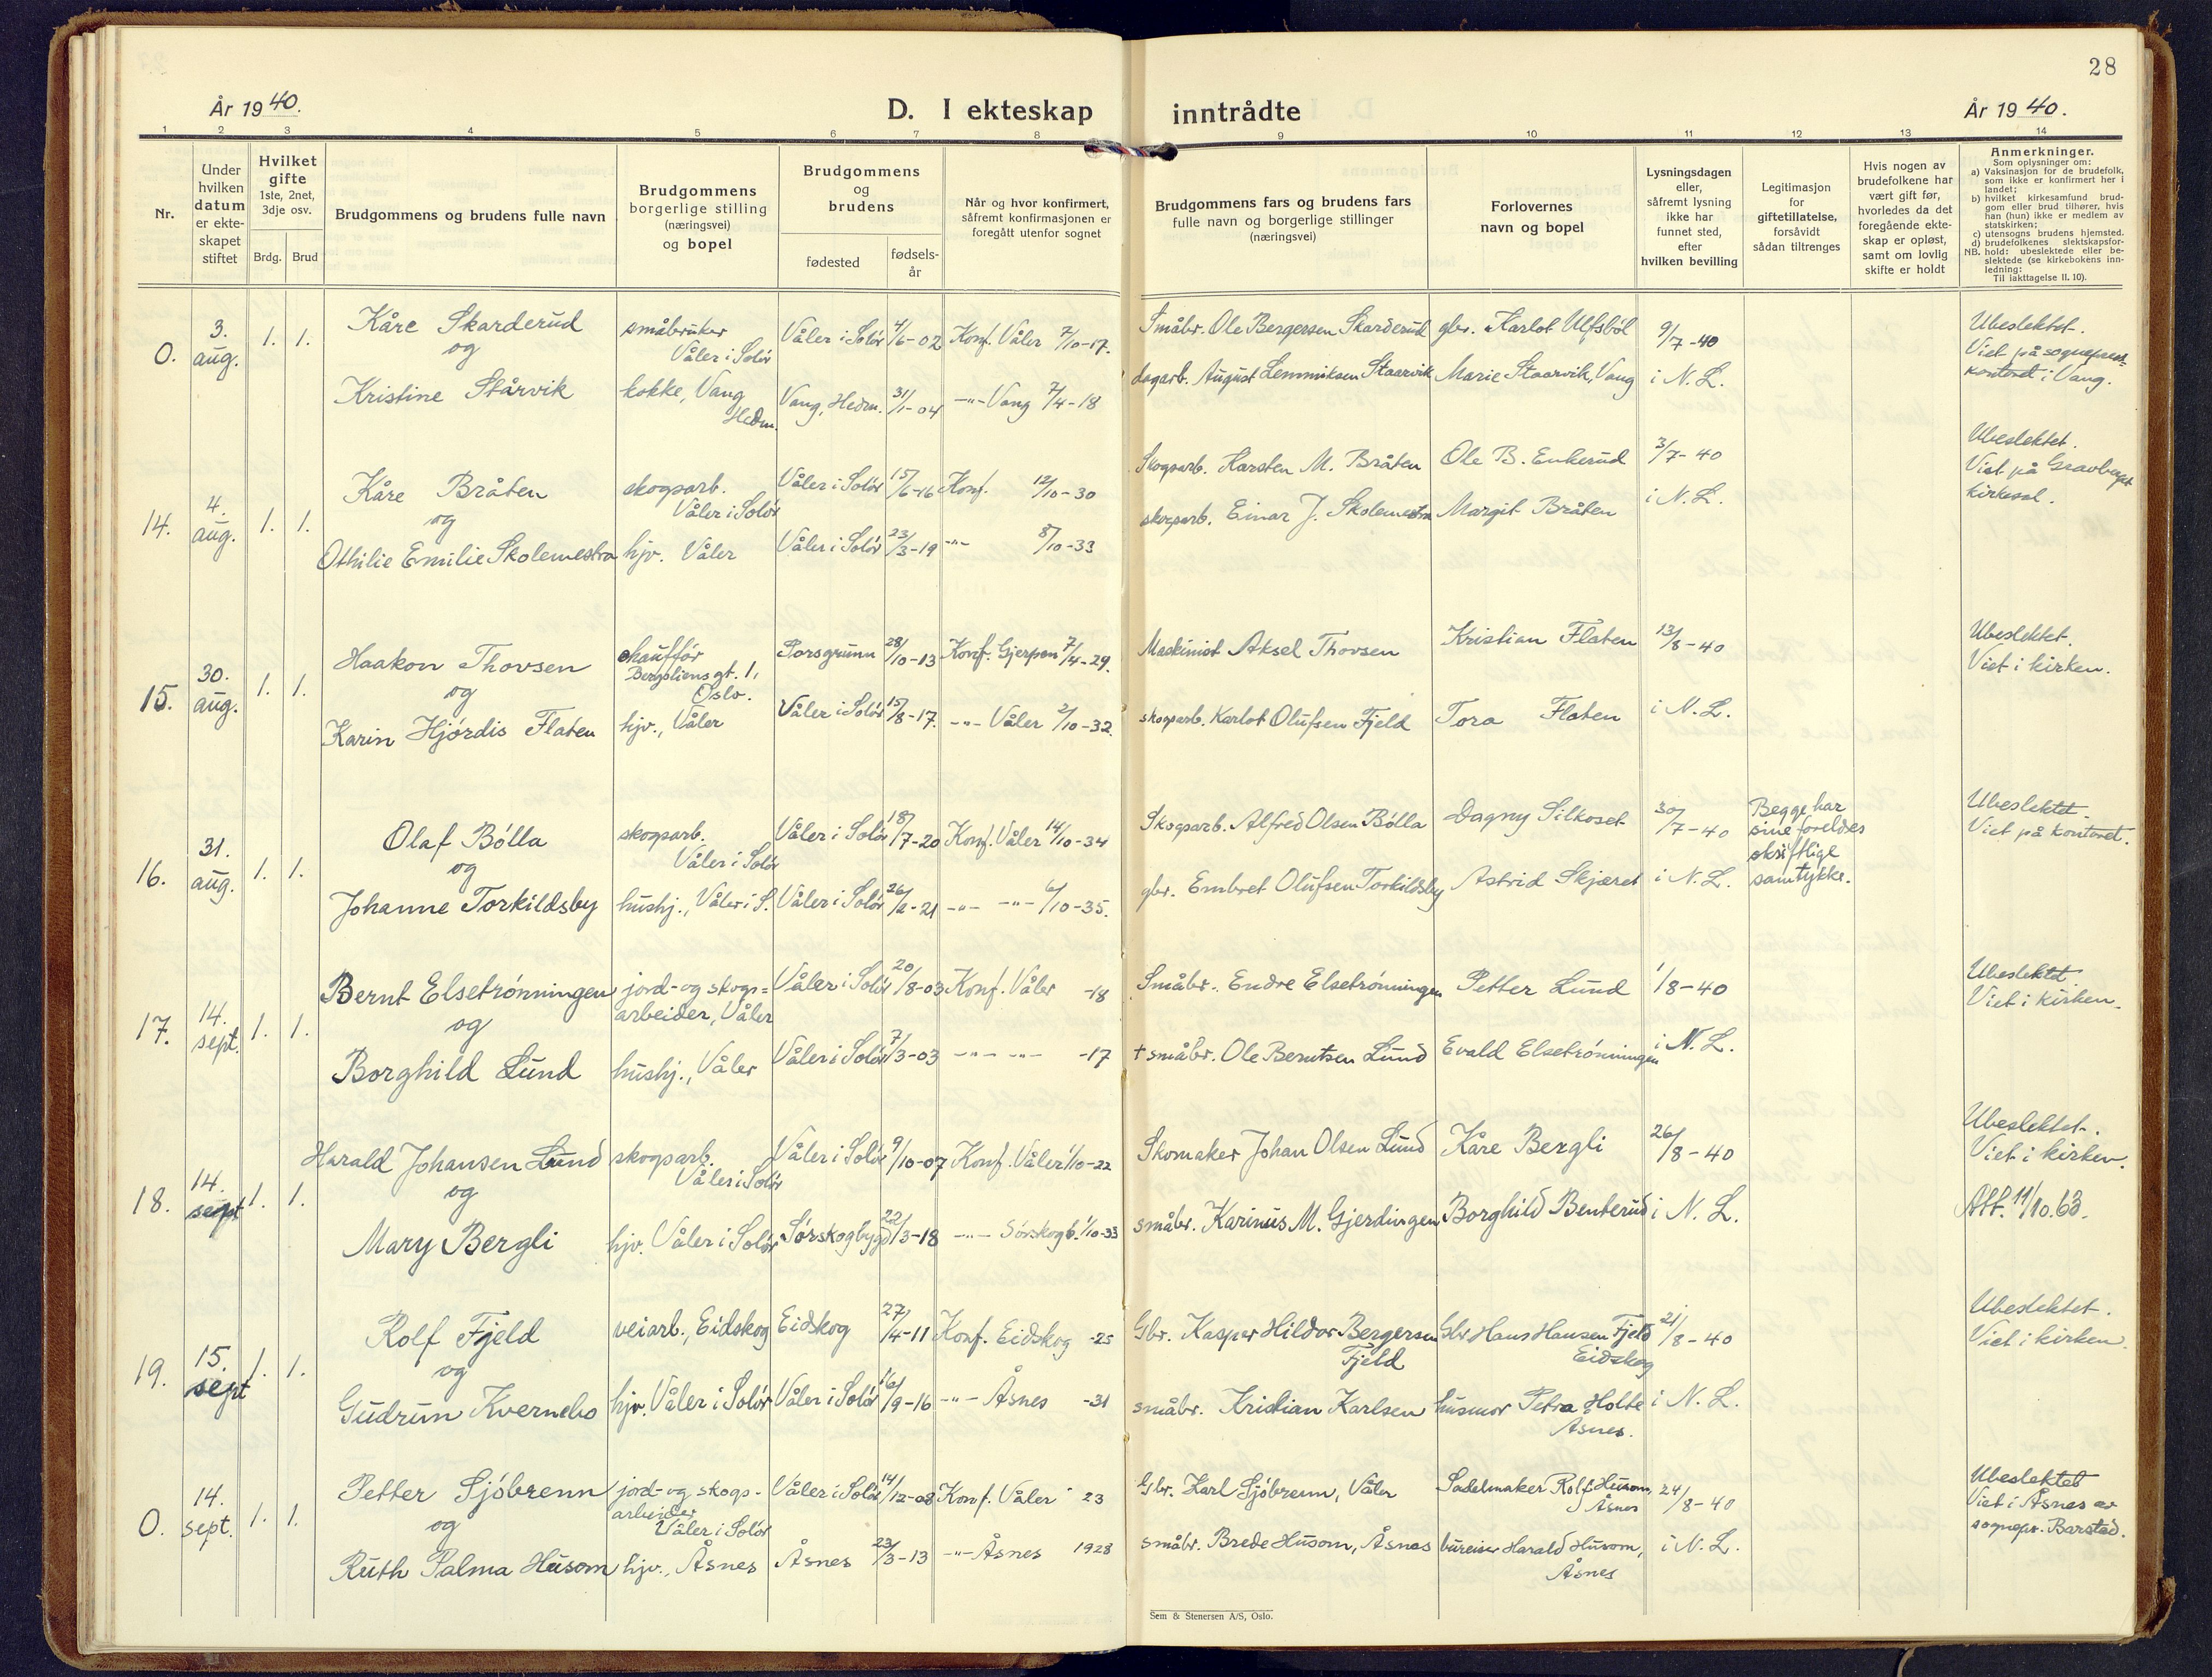 28
År 1940.
D. I ekteskap inntrådte
År 1940.
1 2 3 4 5 6 7 8 9 10 11 12 13 14
Nr.
Under
hvilken
datum
er ekte-
skapet
stiftet
Hvilket
gifte
1ste, 2net,
3dje osv.
Brdg. Brud
Brudgommens og brudens fulle navn
Brudgommens
borgerlige stilling
(næringsvei)
og bopel
Brudgommens
og
brudens
fødested
fødsels-
år
Når og hvor konfirmert,
såfremt konfirmasjonen er
foregått utenfor sognet
Brudgommens fars og brudens fars
fulle navn og borgerlige stillinger
(næringsvei)
Forlovernes
navn og bopel
Lysningsdagen
eller,
såfremt lysning
ikke har
funnet sted,
efter
hvilken bevilling
Legitimasjon
for
giftetillatelse,
forsåvidt
sådan tiltrenges
Hvis nogen av
brudefolkene har
vært gift før,
hvorledes da det
foregående ekte-
skap er opløst,
samt om lovlig
skifte er holdt
Anmerkninger.
Som oplysninger om:
a) Vaksinasjon for de brudefolk,
som ikke er konfirmert her i
landet;
b) hvilket kirkesamfund brud-
gom eller brud tilhører, hvis
han (hun) ikke er medlem av
statskirken;
c) utensogns brudens hjemsted.
d) brudefolkenes slektskapsfor-
NB. hold: ubeslektede eller be-
slektede (se kirkebokens inn-
ledning:
Til iakttagelse II. 10).
0. 3. aug. 1. 1.
Kåre Skarderud
og
Kristine Stårvik
småbruker
Våler i Solør
kokke, Vang
Hedm.
Våler i Solør 4/6-02 Konf. Våler 7/10-17.
Vang, Hedm. 31/1-04 -"- Vang 7/4-18
Småbr. Ole Bergersen Skarderud
dagarb. August Lemmiksen Staarvik
gbr. Karlot Ulfsbøl
Marie Staarvik, Vang
9/7-40
i N. L.
Ubeslektet.
Viet på sogneprest-
kontoret i Vang.
14. 4. aug. 1. 1.
Kåre Bråten
og
Othilie Emilie Skolemestra
skogsarb.
Våler i Solør
hjv. Våler
Våler i Solør 15/6-16 Konf. 12/10-30
Våler i Solør 23/3-19 -"- 8/10-33
Skogsarb. Karsten M. Bråten
skogsarb. Einar J. Skolemestra
Ole B. Enkerud
Margit Bråten
3/7-40
i N. L.
Ubeslektet.
Viet på Gravberget
kirkesal.
15. 30. aug. 1. 1.
Haakon Thovsen
og
Karin Hjørdis Flaten
chauffør
Bergsliensgt. 1,
Oslo.
hjv., Våler
Porsgrunn 28/10-13 Konf. Gjerpen 7/4-29.
Våler i Solør 15/8-17. -"- Våler 2/10-32.
Maskinist Aksel Thovsen
skogsarb. Karlot Olufsen Fjeld
Kristian Flaten
Tora Flaten
13/8-40
i N. L.
Ubeslektet.
Viet i kirken.
16. 31. aug. 1. 1.
Olaf Bølla
og
Johanne Torkildsby
skogsarb.
Våler i Solør
hushj., Våler i S.
Våler i Solør 18/7-20 Konf. Våler 14/10-34
Våler i Solør 26/2-21 -"- -"- 6/10-35.
Skogsarb. Alfred Olsen Bølla
gbr. Embret Olufsen Torkildsby
Dagny Silkoset
Astrid Skjæret
30/7-40
i N. L.
Begge har
sine foreldres
skriftlige
samtykke.
Ubeslektet.
Viet på kontoret.
17. 14. sept. 1. 1.
Bernt Elsetrønningen
og
Borghild Lund
jord- og skogs-
arbeider, Våler
hushj., Våler
Våler i Solør 20/8-03 Konf. Våler -18
Våler i Solør 7/3-03 -"- -"- -17
Småbr. Endre Elsetrønningen
+ småbr. Ole Berntsen Lund
Petter Lund
Evald Elsetrønningen
1/8-40
i N. L.
Ubeslektet.
Viet i kirken.
18. 14. sept 1. 1.
Harald Johansen Lund
og
Mary Bergli
skogsarb.
Våler i Solør
hjv. Våler i Solør
Våler i Solør 9/10-07 Konf. Våler 1/10-22
Sørskogbygd 22/3-18 -"- Sørskogb. 1/10-33
Skomaker Johan Olsen Lund
småbr. Karinus M. Gjerdingen
Kåre Bergli
Borghild Benterud
26/8-40
i N. L.
Ubeslektet.
Viet i kirken.
Att. 11/10.63.
19. 15. sept 1. 1.
Rolf Fjeld
og
Gudrun Kvernebo
veiarb., Eidskog
hjv. Våler i Solør
Eidskog 27/4-11 Konf. Eidskog -25
Våler i Solør 16/9-16 -"- Åsnes -31
Gbr. Kasper Hildor Bergersen
Fjeld
småbr. Kristian Karlsen
Gbr. Hans Hansen Fjeld
Eidskog
husmor Petra Holte
Åsnes.
21/8-40
i N. L.
Ubeslektet.
Viet i kirken.
0. 14. sept. 1. 1.
Petter Sjøbrenn
og
Ruth Palma Husom
jord- og skogs-
arbeider
Våler i Solør
hjv., Åsnes
Våler i Solør 14/12-08 Konf. Våler 23
Åsnes 23/3-13 -"- Åsnes 1928
Gbr. Karl Sjøbrenn, Våler
småbr. Brede Husom, Åsnes
Sadelmaker Rolf Husom,
Åsnes
bureiser Harald Husom,
Åsnes
24/8-40
i N. L.
Ubeslektet
Viet i Åsnes av
sognepr. Barstad.
Sem & Stenersen A/S, Oslo.